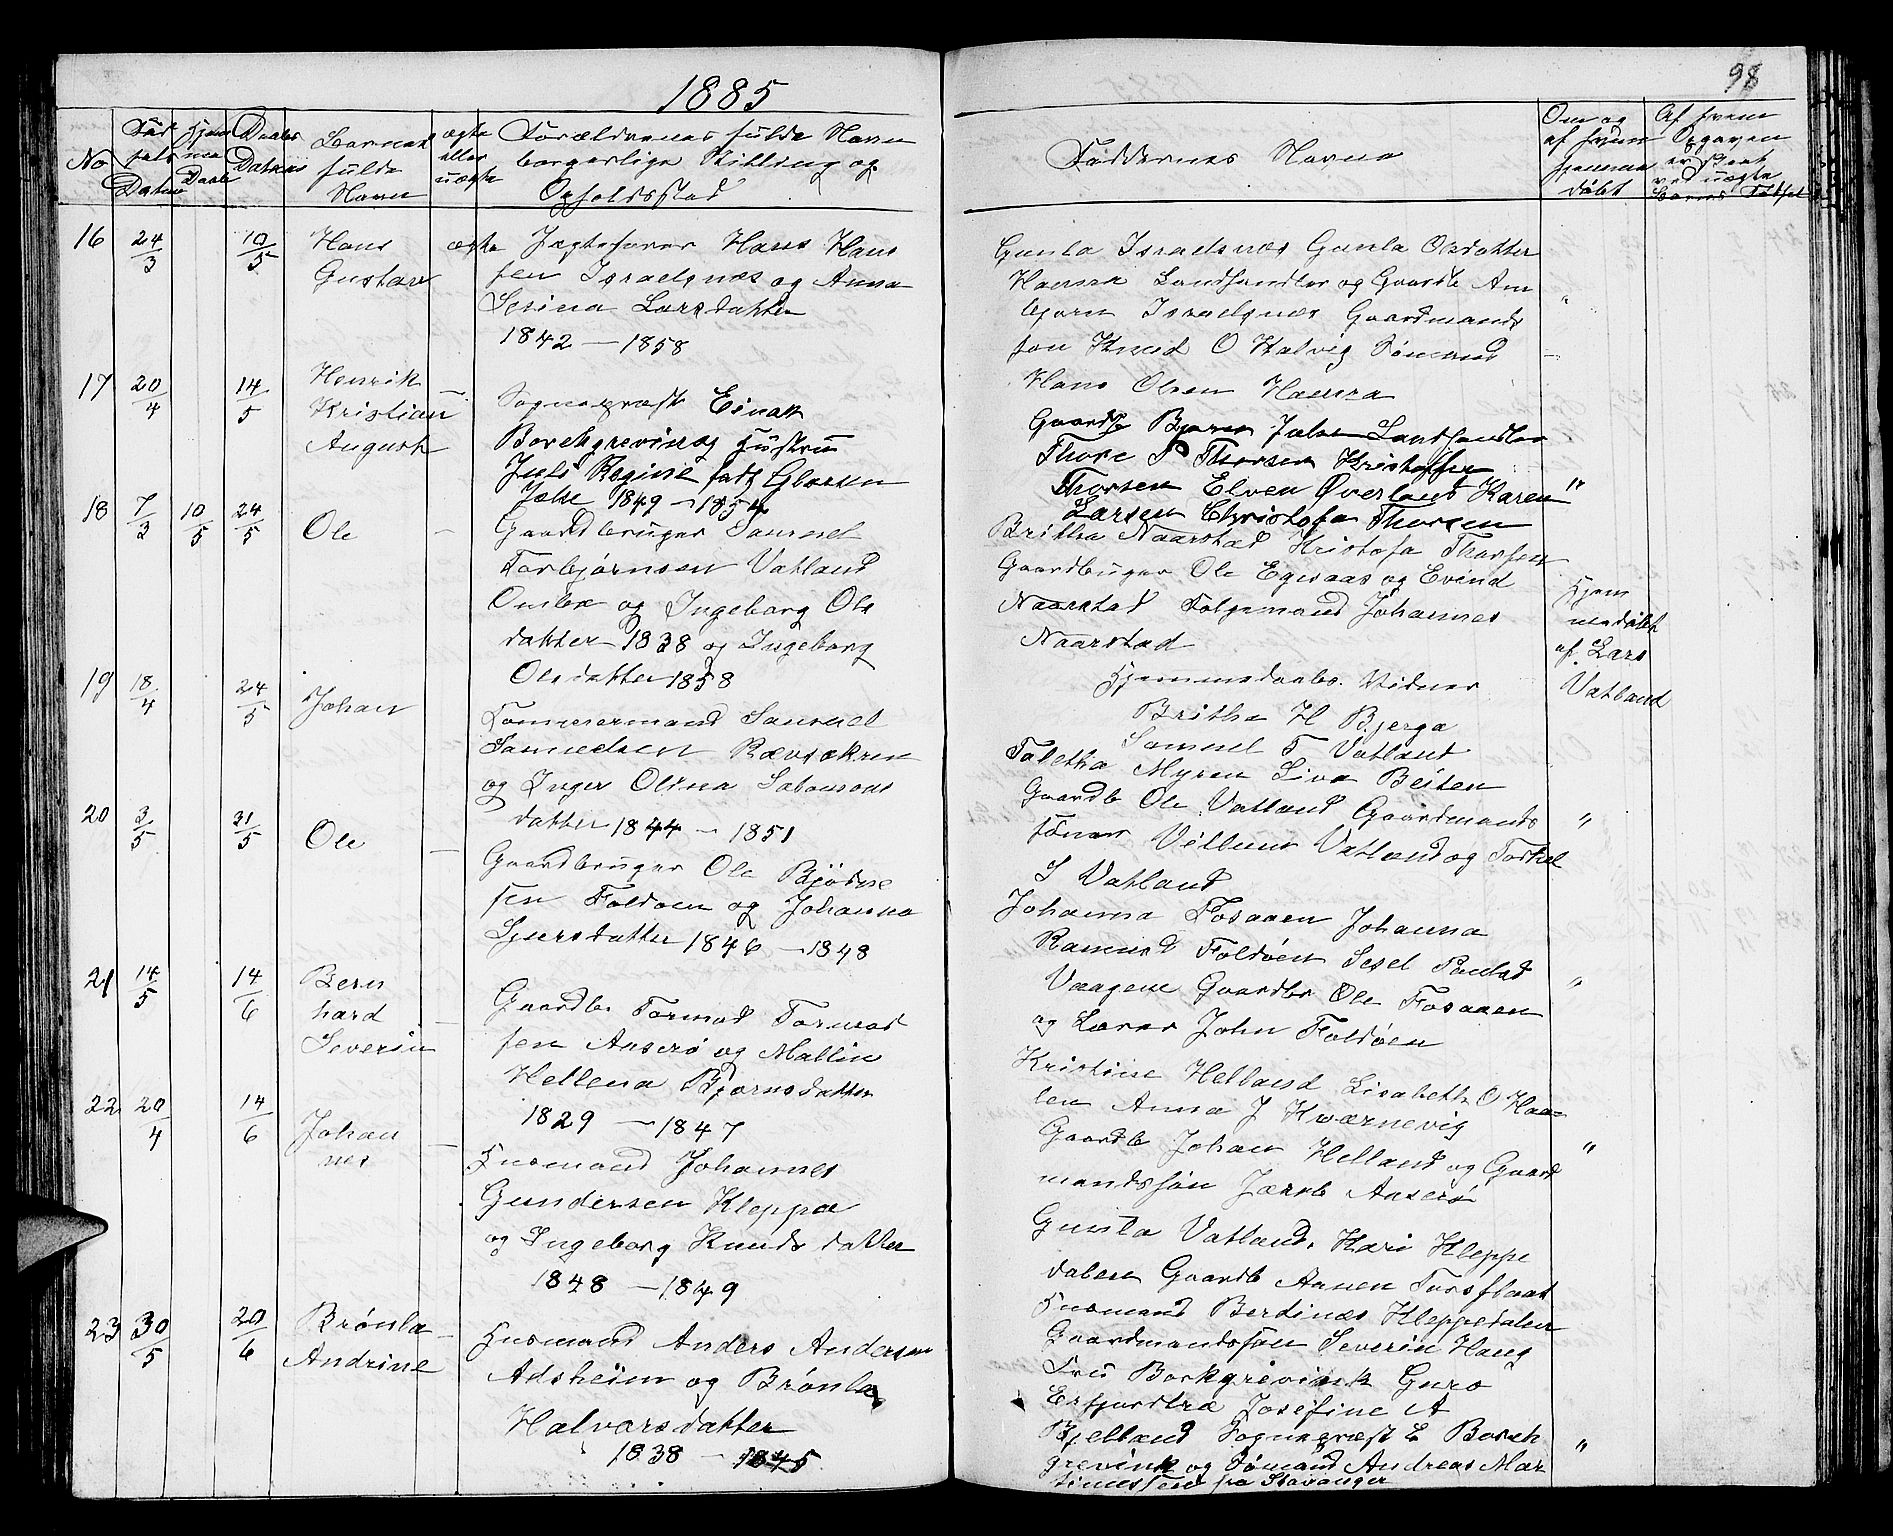 1885
98
No
Fød
sels
Datum
Hjem
me
Daab
Daabs
Datum
Barnets
fulde
Navn
ægte
eller
uægte
Forældrenes fulde Navn
borgerlige Stilling og
Opholdssted
Faddernes Navne
Om og
af hvem
hjemme
døbt
Af hvem
Opgaven
er skeet
ved uægte
Barns Fødsel
16 24/3 10/5 Hans ægte Jægtefører Hans Hans
Gustav sen Israelsnæs og Anna
Serina Larsdatter
1842 — 1858
Gunla Israelsnæs Gunla Olsdatter
Hamra Landhandler og Gaardb Am
bjørn Israelsnæs Gaardmands "
søn Knud O Halvig Sømand
Hans Olsen Hamra
17 20/4 14/5 Henrik —
Kristian Sognepræst Einar
August Borchgrevink og Hustru
Juls Regine født Gloersen
Jelse 1849 — 1854
Gaardb Bjørn Jelse Landhandler
Thore P Thorsen Kristoffer
Thorsen Elven Øverland Karen "
Larsen Christofa Thorsen
18 7/3 10/5 24/5 Ole — Gaardbruger Samuel
Torbjørnsen Vatland
Ombx og Ingeborg Ols
datter 1838 og Ingeborg
Olsdatter 1858
Britha Naarstad Kristofa Thorsen
Gaardbruger Ole Egesaas og Evind
Naarstad Folgemand Johannes
Naarstad
Hjemmedaabs. Vidner
Britha H Bjerga
Samuel T Vatland
Hjem
medøbt
af Lars
Vatland
19 18/4 24/5 Johan
Tømmermand Samuel
Samuelsen Rævsakren
og Inger Olina Salomons
datter 1844 — 1851
Taletha Myren Live Beiten
Gaardb Ole Vatland Gaardmands "
sønner Villum Vatland og Torkel
S Vatland
20 3/5 31/5 Ole —
Gaardbruger Ole Bjødne
sen Foldøen og Johanna
Sjursdatter 1846 — 1848
Johanna Fosaaen Johanna
Ramund Foldøen Sesel Paulsd
Vaagene Gaardbr Ole Fosaaen "
og Lærer John Foldøen
21 14/5 14/6 Bern
hard —
Severin
Gaardb. Tormod Tormod
sen Anserø og Mallin
Hellena Bjørnsdatter
1829 — 1847
Kristine Helland Lisabeth O Haa
len Anna J Kværnevig
Gaardb Johan Helland og Gaard "
mandssøn Jacob Anserø
22 20/4 14/6 Johan —
nes
Husmand Johannes
Gundersen Kleppa
og Ingeborg Knudsdatter
1848 — 1849
Gunla Vatland. Kari Kleppe
dalen Gaardb Aanen Torsflaat
Husmand Berdines Kleppedalen
Gaardmandssøn Severin Haug
23 30/5 20/6 Brønla —
Andrine
Husmand Anders Andersen
Adsheim og Brønla
Halvorsdatter
1838 — 1845
Fru Borkgrevink Guro
Erfjordtræ Josefine A
Bjelland Sognepræst E Borch "
grevink og Sømand Andreas Mar
tinussen fra Stavanger